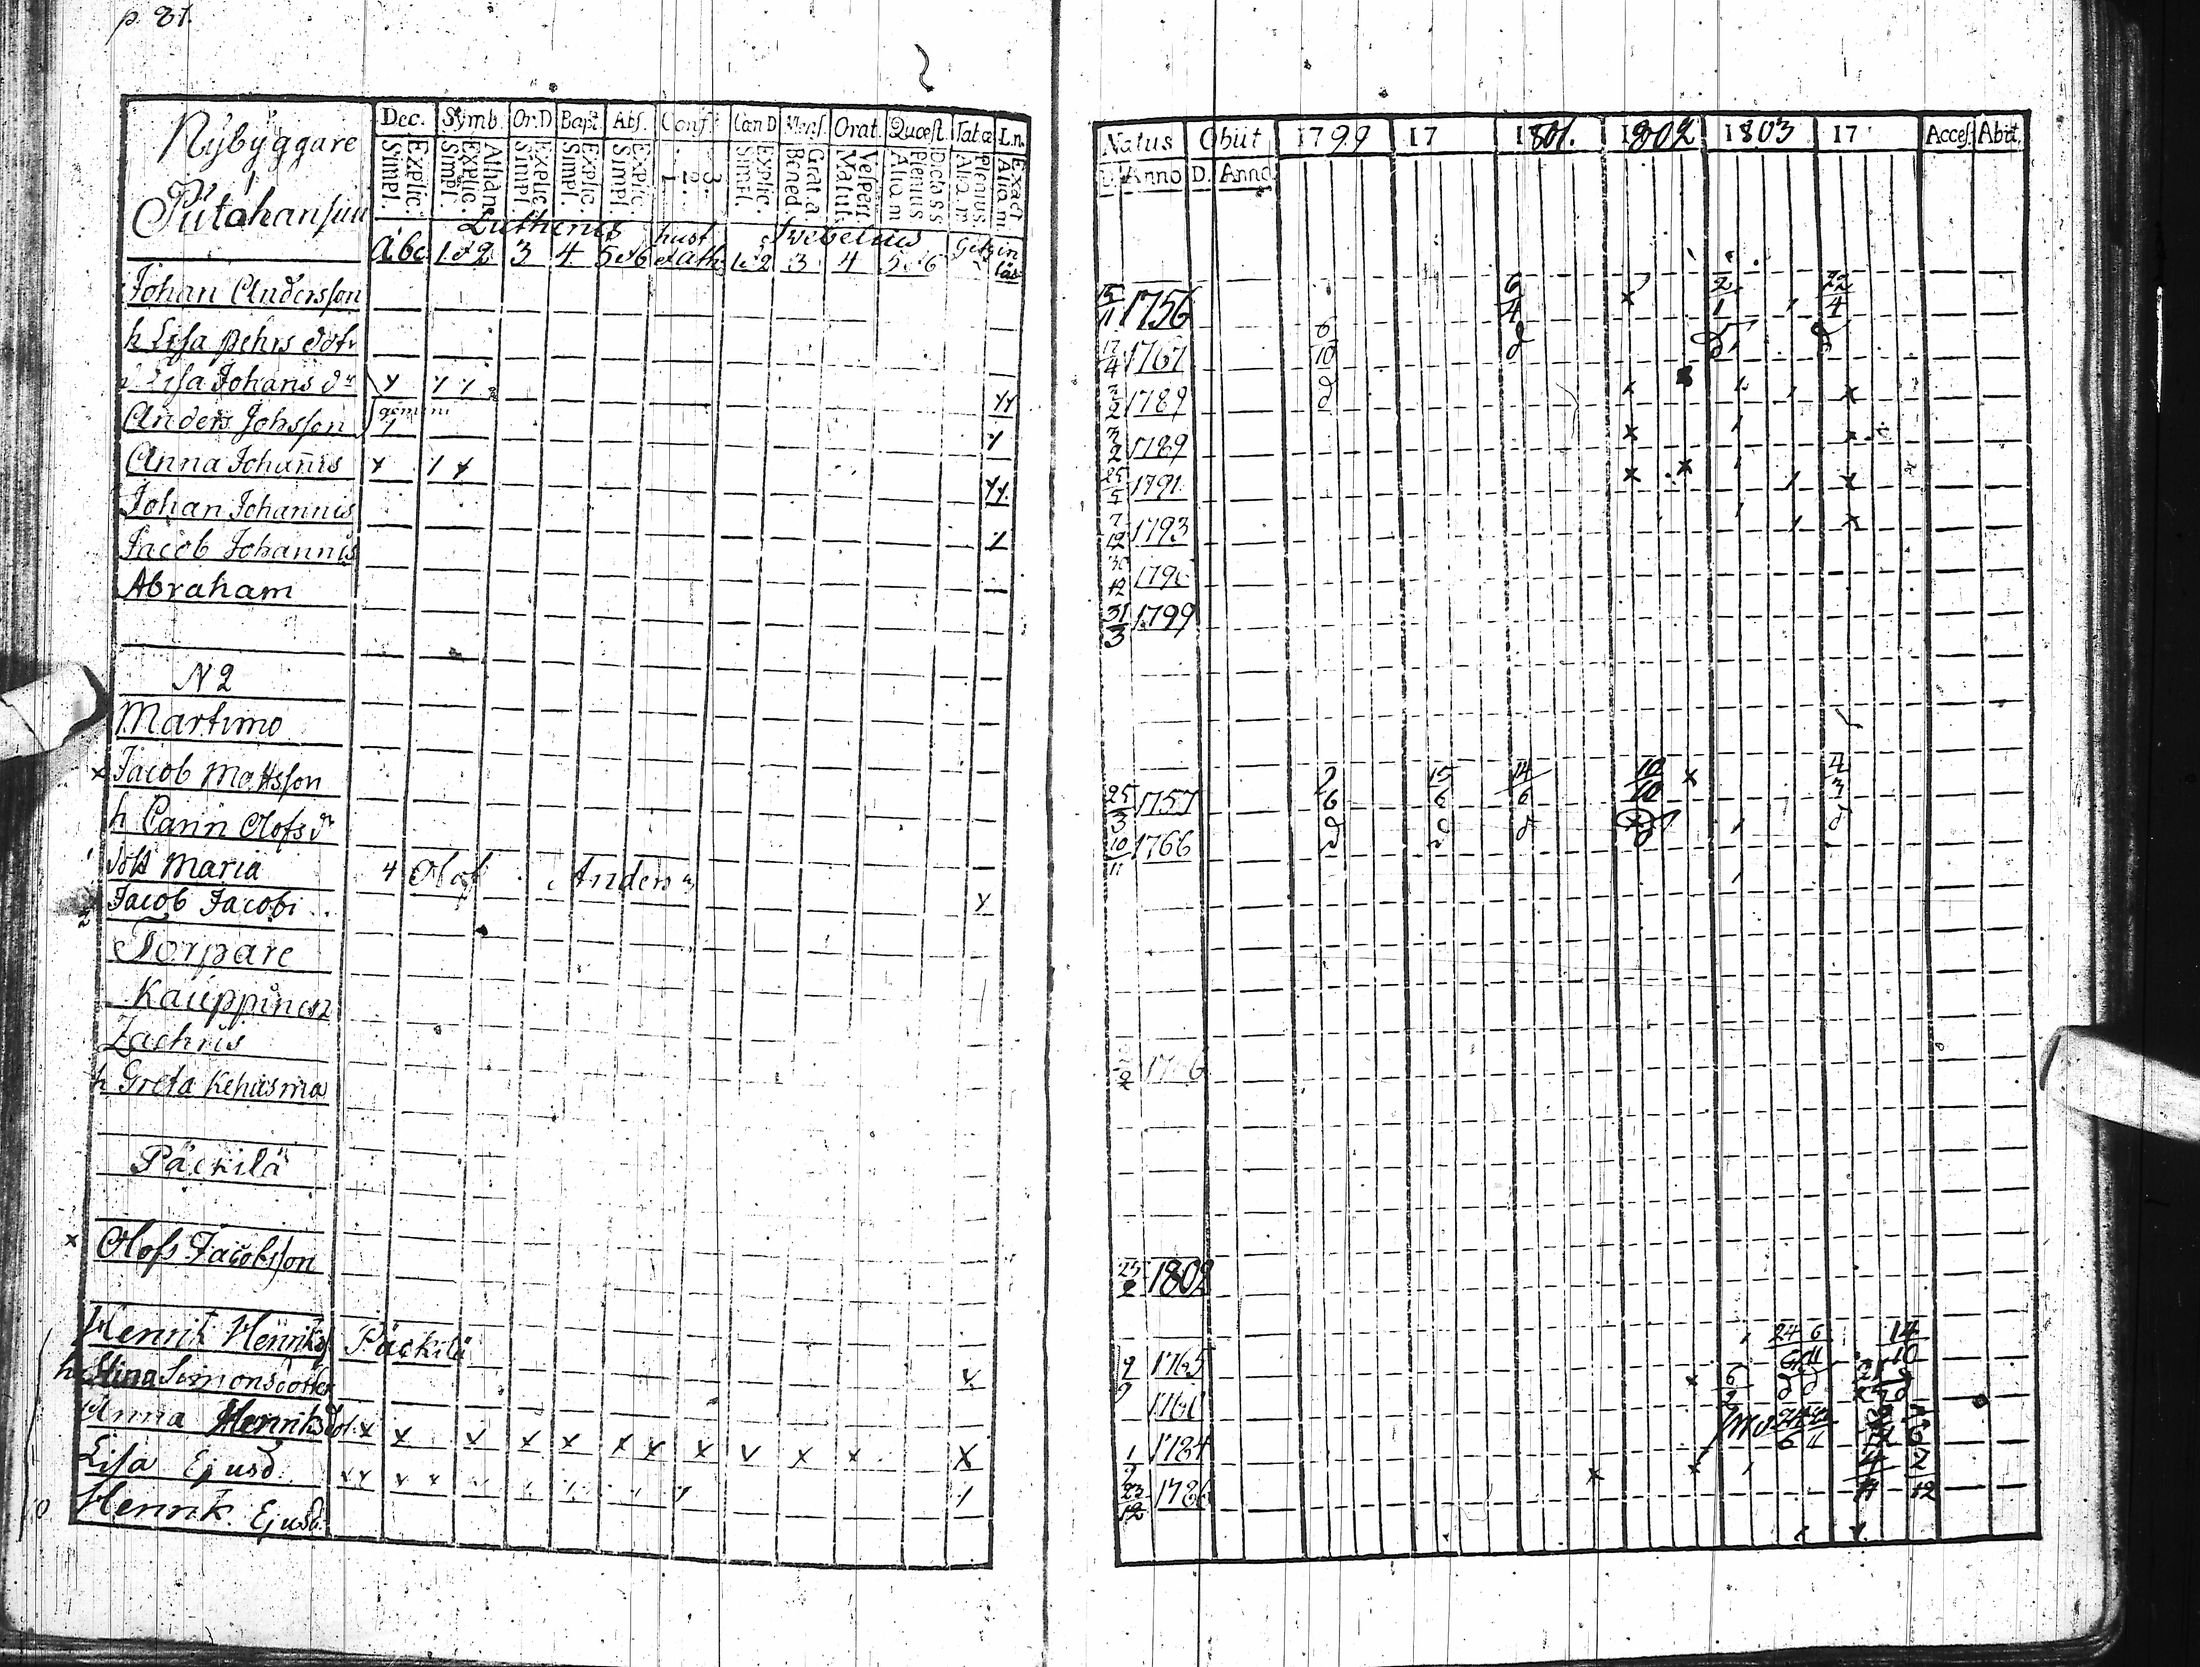 p. 81.
Nÿbÿggare
Dec. Symb. Or.D Bapt. Abs. Conf. Cœn D Mens. Orat. Quœst. Tab.œ L.n.
Simpl. Explic. Simpl. Explic. Athan. Simpl. Explic. Simpl. Explic. Simpl. Explic. 1 2 3 Simpl. Explic. Bened. Grat.a Matut. Vesper. Aliq.m Plenius Doc.ass Aliq.m Plenius. Aliq.m Exact
Lutherus hust Svebelius
Abc 1 & 2 3 4 5 & 6 & ath 1 & 2 3 4 5 & 6 in läs
Johan Andersson
h Lisa Pehrs dotr
Lisa Johans dr
Anders Johsson gemini
Anna Johañis
Johan Johannis
Jacob Johannis
Abraham
N 2
Martimo
x Jacob Mattsson
h Carin Olofs dr
1 dotr Maria 4 Olof Anders
2 Jacob Jacobi
Torpare
Kauppinen
Zachris
h Greta Kehusmaa
Päckilä
x Olofs Jacobsson
Henrik Henriks Päckilä
h Stina Simonsdotter
Anna Henriksdot.
Lisa Ejusd.
Henrik. Ejusd.
Natus Obiit 1799 17 1801. 1802 1803 17 Access. Abiit.
D. Anno D. Anno
5/11 1756 6/4 2/1 22/4
17/4 1767 6/10
2/2 1789
2/2 1789
25/5 1791
7/12 1793
30/12 179
31/3 1799
25/3 1757 15/6 14/6 10/10 4/3
10/11 1766
25/2 1802
1765 24/6 14/10
176
1/9 1784
23/12 1786